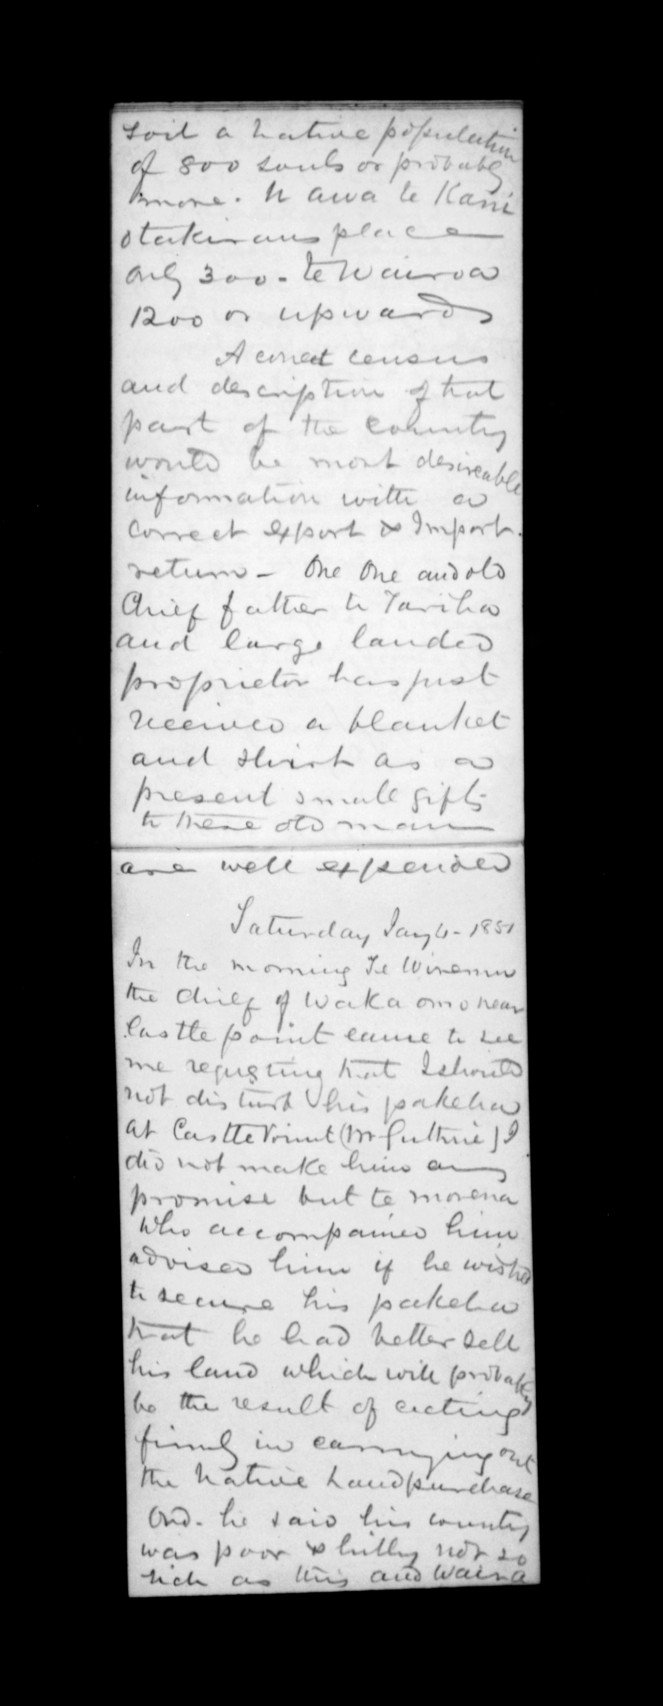 soil a native population
of 800 souls or probably
more. U awa te Kani
otakiraus place
only 300 - te Wairoa
1200 or upwards
A correct census
and description of that
part of the country
would be most desireable
information with a
correct export & Import.
return - One One and old
Chief father to Tariha
and large landed
proprietor has just
received a blanket
and shirt as a
present small gifts
to these old man
are well expended
Saturday Jany 4 - 1851
In the morning Te Wiremu
the chief of Waka omo near
Castle point came to see
me requesting that I should
not disturb his pakeha
at Castle Point (Mr Guthrie) I
did not make him any
promise but te morena
who accompanied him
advised him if he wished
to secure his pakeha
that he had better sell
his land which will probably
be the result of acting
firmly in carrying out
the Native Land purchase
Ord. he said his country
was poor & hilly not so
rich as this and Waira